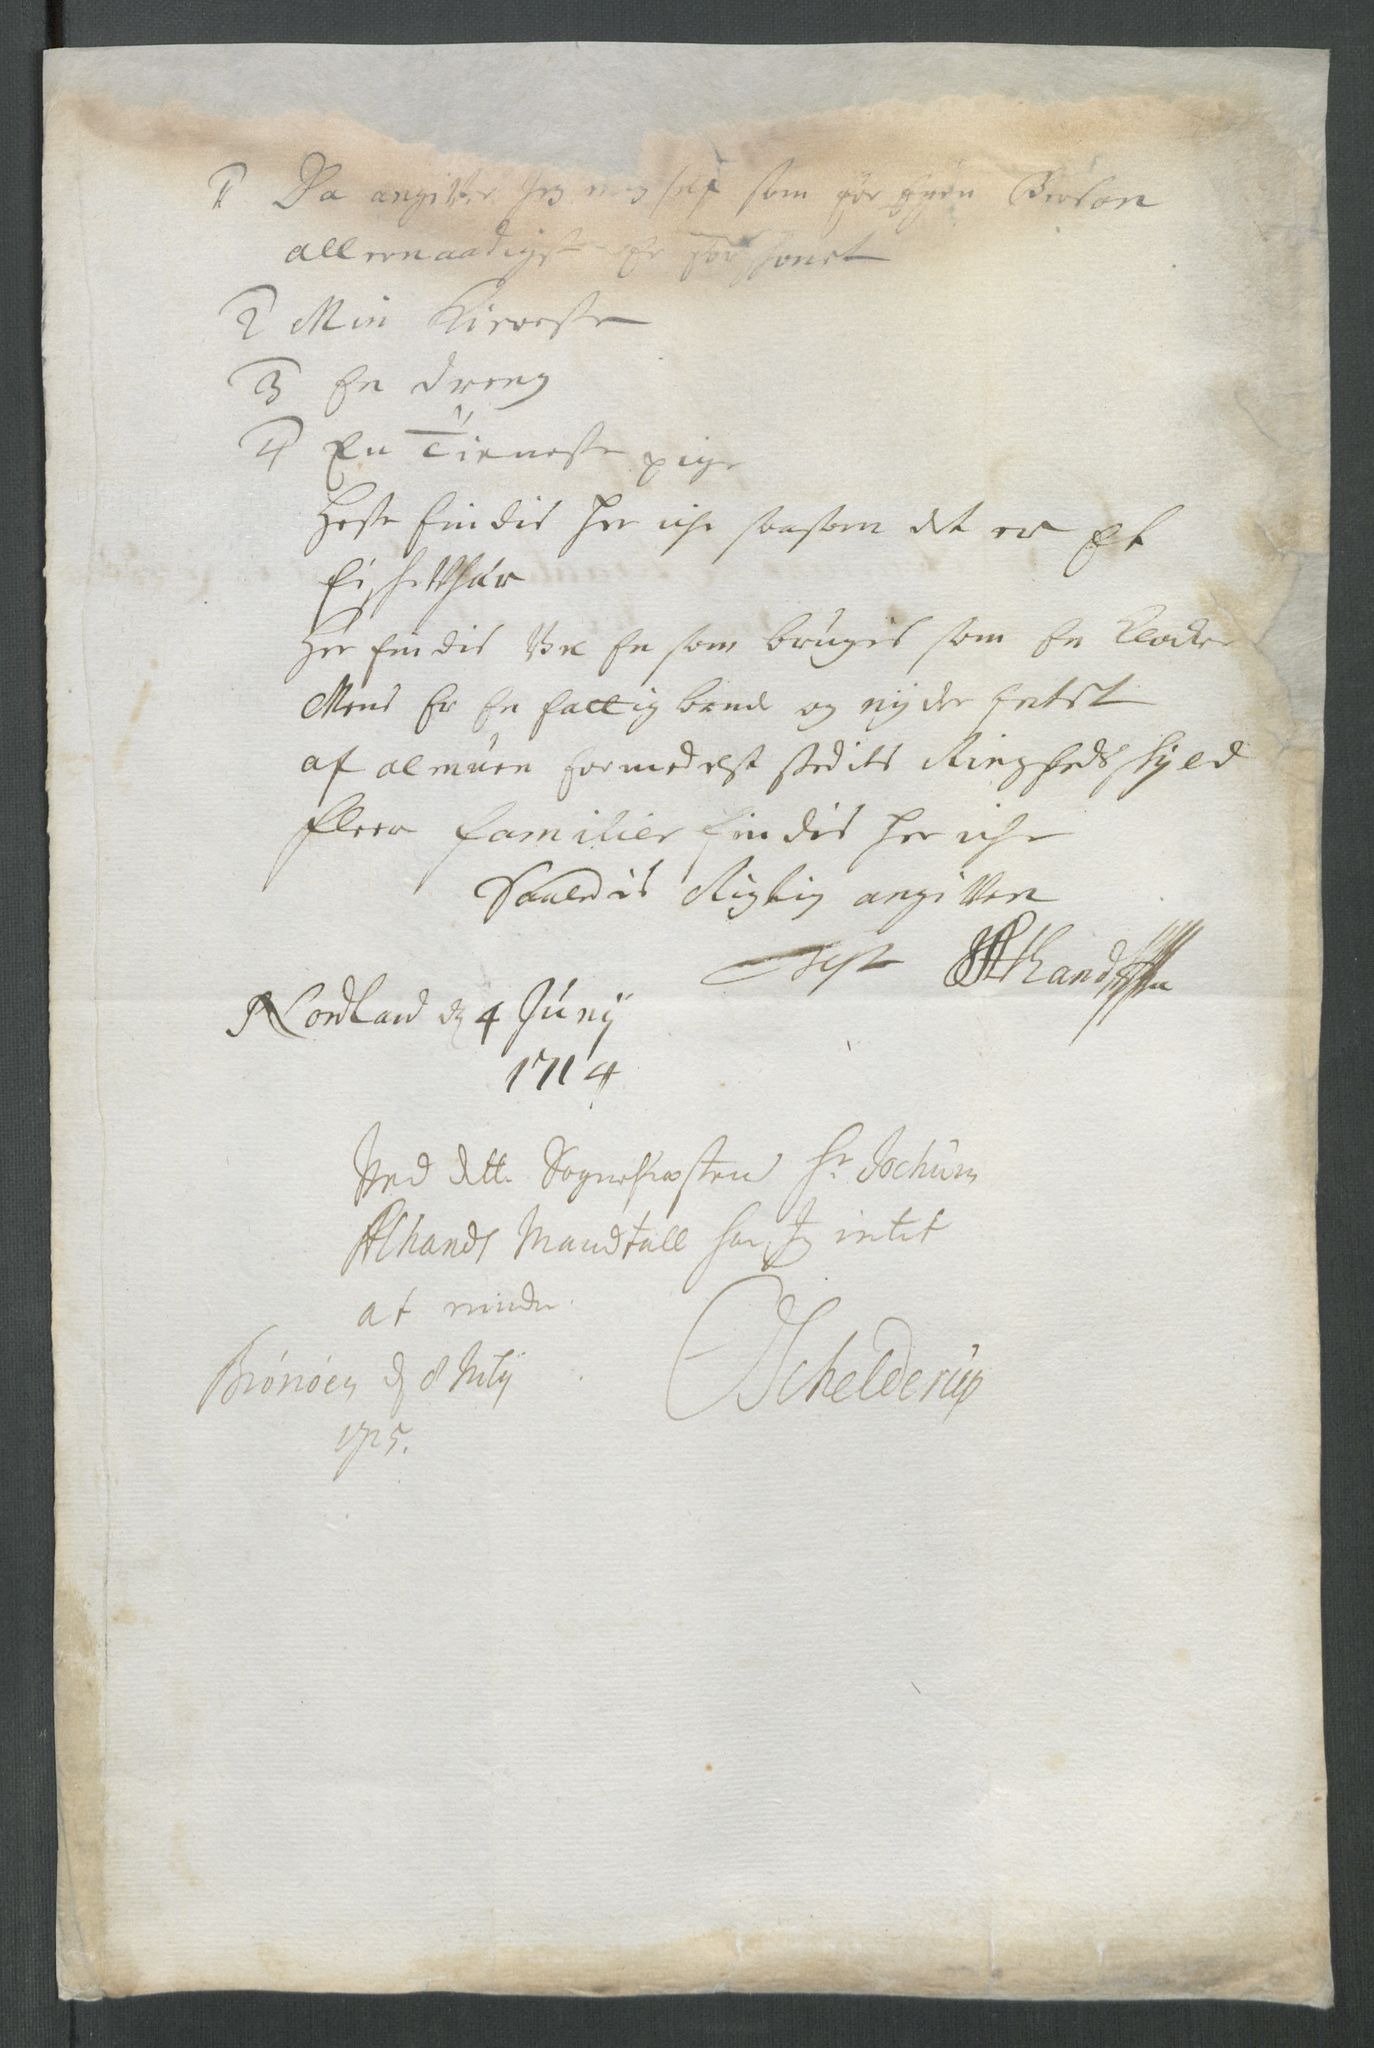 1 Da angiver Jeg mig self som for Egen Person
allernaadigst Er forskonet
2 Min Kiereste
3 En dreng
4 En Tieneste pige
Heste findis her iche saasom det er Et
Fischevhær
Her findis Vel En som bruges som En Klocker
Mens Er En fattig bonde og nyder intet
af almuen formedelst stedits Ringheds skyld
fleere familier findis her iche
Saaledis Rigtig angiven
Test
Nordland d 4 Junij
1714
Ved dette Sognepræsten Hr Jochum
Alhands Mandtall har Jeg intet
at minde
Brønøen d 8 July
1715.
Schelderup